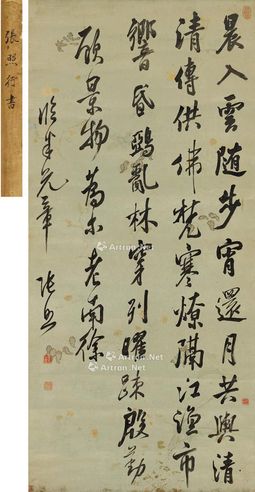 張照行書
晨入雲随步宵還月共輿清
清傳供佛梵寒燎隔江漁市
響昏鴉亂林穿列曜踈殷勤
顧景物為尔老南徐
臨米元章 張照
Artron.Net
Artron.Net
Artron.Net